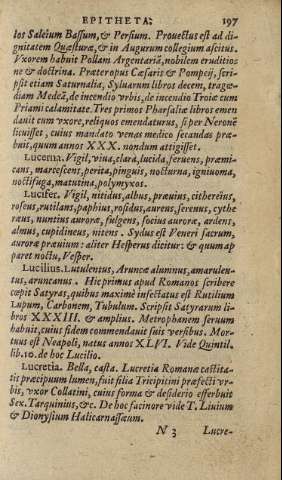 EPITHETA: 197
los Saleium Bassum, & Persium. Prouectus est ad di-
gnitatem Quæsturæ, & in Augurum collegium ascitus.
Vxorem habuit Pollam Argentariā, nobilem eruditio
ne & doctrina. Præteropus Cæsaris & Pompeij, scri-
psit etiam Saturnalia, Syluarum libros decem, tragœ-
diam Medeā, de incendio vrbis, de incendio Troiæ cum
Priami calamitate. Tres primos Pharsaliæ libros emen
dauit cum vxore, reliquos emendaturus, si per Neronē
licuisset, cuius mandato venas medico secandas præ-
buit, quum annos XXX. nondum attigisset.
Lucerna. Vigil, viua, clara, lucida, feruens, præmi-
cans, marcescens, perita, pinguis, nocturna, igniuoma,
noctifuga, matutina, polymyxos.
Lucifer. Vigil, nitidus, albus, præuius, cithereius,
roseus, rutilans, paphius, rosidus, aureus, serenus, cythe
ræus, nuntius auroræ, fulgens, socius auroræ, ardens,
almus, cupidineus, nitens. Sydus est Veneri sacrum,
auroræ præuium: aliter Hesperus dicitur: & quum ap
paret noctu, Vesper.
Lucilius. Lutulentus, Aruncæ alumnus, amarulen-
tus, aruncanus. Hic primus apud Romanos scribere
cœpit Satyras, quibus maximè insectatus est Rutilium
Lupum, Carbonem, Tubulum. Scripsit Satyrarum li-
bros XXXIII. & amplius. Metrophanem seruum
habuit, cuius fidem commendauit suis versibus. Mor-
tuus est Neapoli, natus annos XLVI. Vide Quintil.
lib. 10. de hoc Lucilio.
Lucretia. Bella, casta. Lucretia Romanæ castita-
tis præcipuum lumen, fuit filia Tricipitini præfecti vr-
bis, vxor Collatini, cuius forma & desiderio efferbuit
Sex. Tarquinius, &c. De hoc facinore vide T. Liuium
& Dionysium Halicarnassæum.
N 3 Lucre-